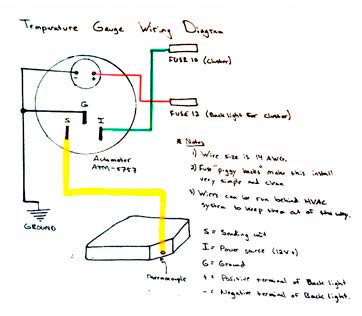 Temperature Gauge Wiring Diagram
FUSE 10 (Cluster)
- +
G
S I
FUSE 12 (Backlight For Cluster)
Autometer
ATM-5757
* Notes
1) Wire size is 14 AWG.
2) Fuse "piggy backs" make this install
very simple and clean
3) Wires can be run behind HVAC
system to keep them out of the way.
GROUND
S = Sending unit
I = Power source (12V+)
G = Ground
+ = Positive terminal of Back light
- = Negative terminal of Back light.
Thermocouple